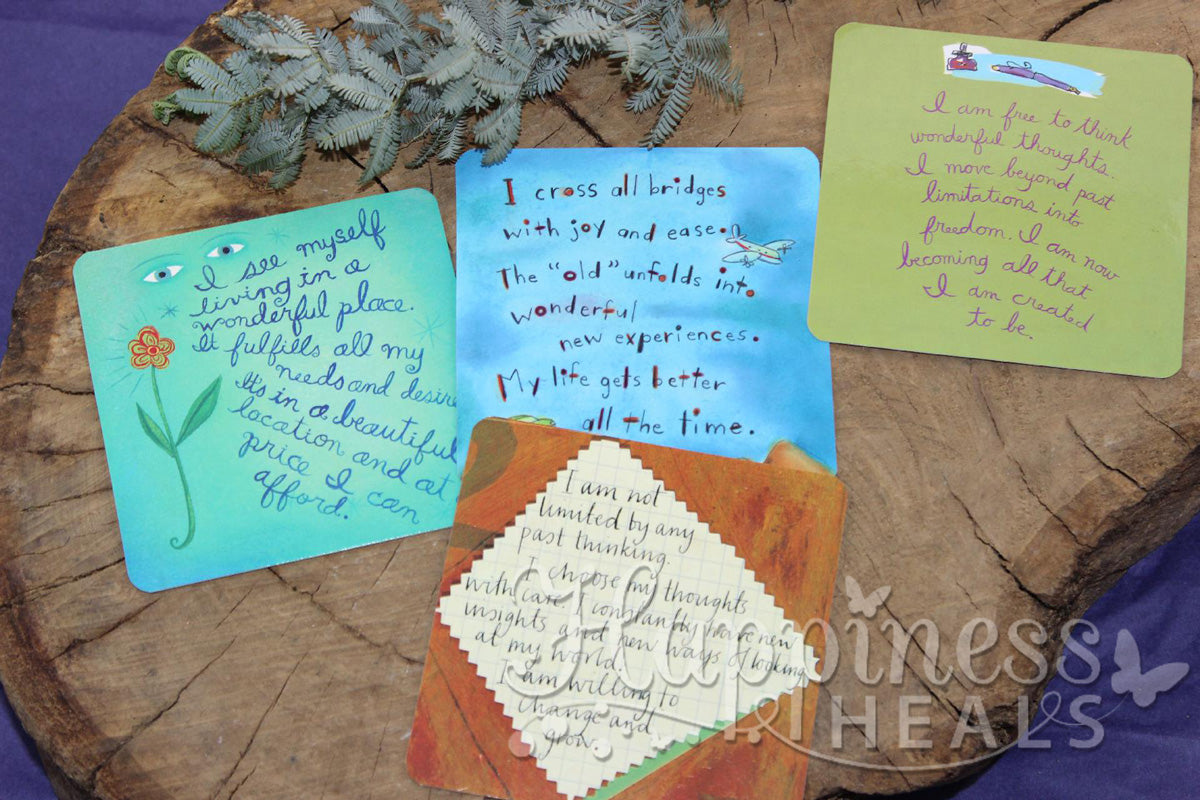 I see myself
living in a
wonderful place.
It fulfills all my
needs and desire
Its in a beautiful
location and at
price I can
afford.
I cross all bridges
with joy and ease.
The "old" unfolds into
wonderful
new experiences.
My life gets better
all the time.
I am free to think
wonderful thoughts.
I move beyond past
limitations into
freedom. I am now
becoming all that
I am created
to be.
I am not
limited by any
past thinking.
I choose my thoughts
with care. I constantly have new
insights and new ways of looking
at my world.
I am willing to
change and
grow.
Happiness
HEALS